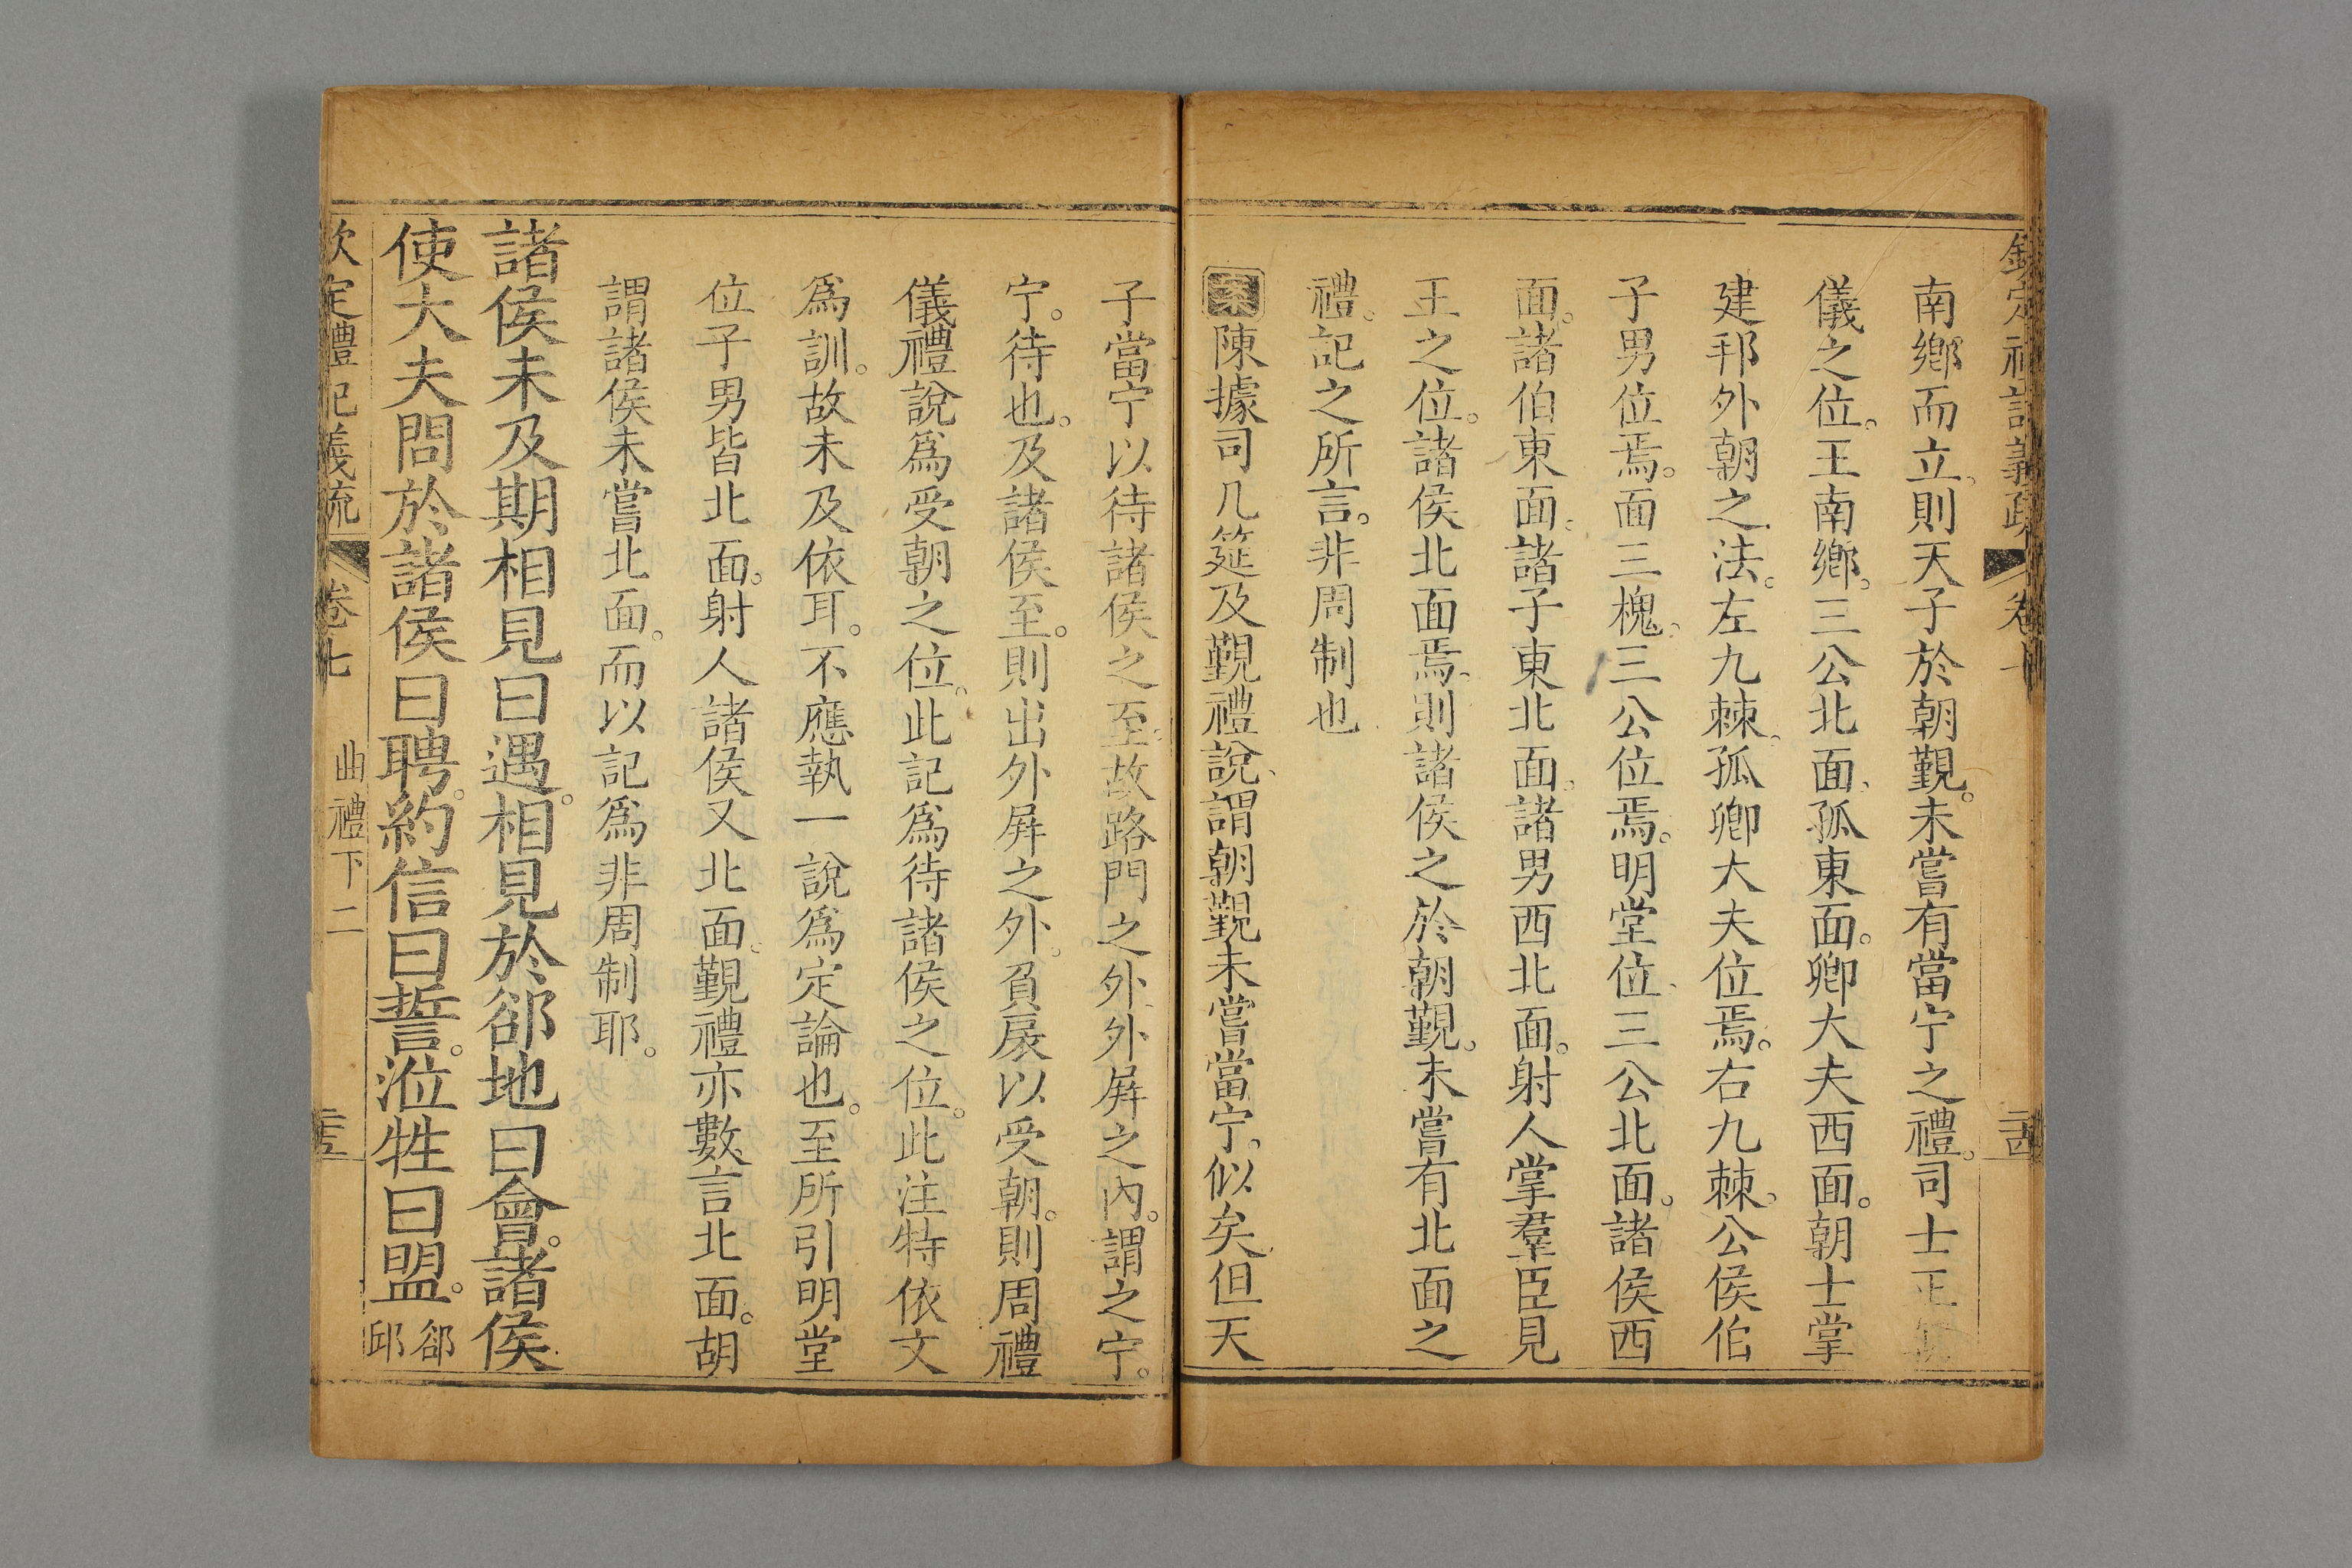 欽定禮記義疏 卷七 二十四
南鄉而立、則天子於朝覲。未嘗有當宁之禮。司士正朝
儀之位。王南鄉。三公北面、孤東面。卿大夫西面。朝士掌
建邦外朝之法。左九棘。孤卿大夫位焉。右九棘。公侯伯
子男位焉。面三槐。三公位焉。明堂位、三公北面。諸侯西
面。諸伯東面。諸子東北面。諸男西北面。射人掌羣臣見
王之位。諸侯北面焉、則諸侯之於朝覲。未嘗有北面之
禮。記之所言。非周制也
案陳據司几筵及覲禮說、謂朝覲未嘗當宁。似矣、但天
子當宁以待諸侯之至。故路門之外、外屏之內。謂之宁。
宁。待也。及諸侯至。則出外屏之外。負扆以受朝。則周禮
儀禮說爲受朝之位。此記爲待諸侯之位。此注特依文
爲訓。故未及依耳。不應執一說爲定論也。至所引明堂
位子男皆北面。射人諸侯又北面。覲禮亦數言北面。胡
謂諸侯未嘗北面。而以記爲非周制耶。
諸侯未及期相見曰遇。相見於郤地曰會。諸侯
使大夫問於諸侯曰聘。約信曰誓。涖牲曰盟。郤
邱
欽定禮記義疏 卷七 曲禮下二 二十五